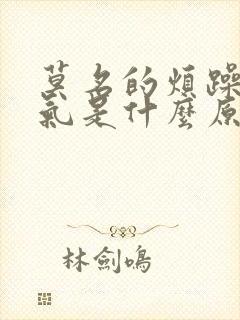 莫名的煩躁
氣是什麼原
林劍鳴